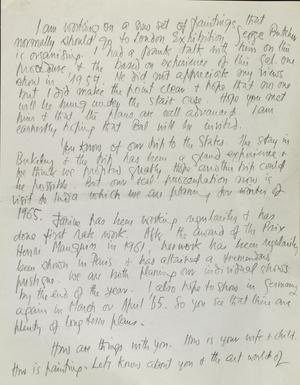 I am working on a new set of paintings that
normally should go to London Exhibition George Butcher
is organising. I had a frank talk with him on this
procedure of the based on experience of this Gal. one
show in 1959. He did not appreciate my views
but I did make the point clear & hope that no one
will be hung under the stair case. Hope you met
him & that the plans are well advanced. I am
earnestly hoping that Bal will be invited.
You know of our trip to the States. The stay in
Berkeley & the trip has been a grand experience &
we think we profited greatly. Hope another trip could
be possible. But our real preoccupation now is
visit to India which we are planning for winter of
1965. Janine has been working regularly & has
done first rate work. After the award of the Prix
Henri Maugham in 1961, her work has been regularly
been shown in Paris & has attained a tremendous
prestige. We are both planning our individual shows
by the end of the year. I also hope to show in Germany
again in March or April '65. So you see that there are
plenty of long term plans.
How are things with you. How is your wife & child.
How is painting. Let's know about you & the art world of